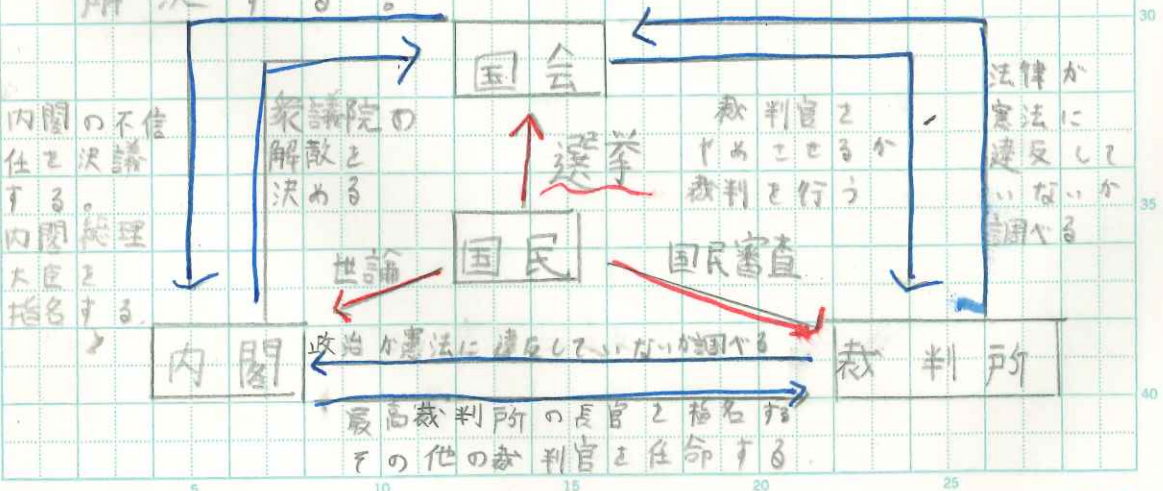 解決する。
国会
内閣の不信
任を決議
する。
内閣総理
大臣を
指名する。
衆議院の
解散を
決める
選挙
裁判官を
やめさせるか
裁判を行う
法律が
憲法に
違反して
いないか
調べる
国民
世論
国民審査
内閣
政治が憲法に違反していないか調べる
裁判所
最高裁判所の長官を指名する
その他の裁判官を任命する
30
35
40
5
10
15
20
25